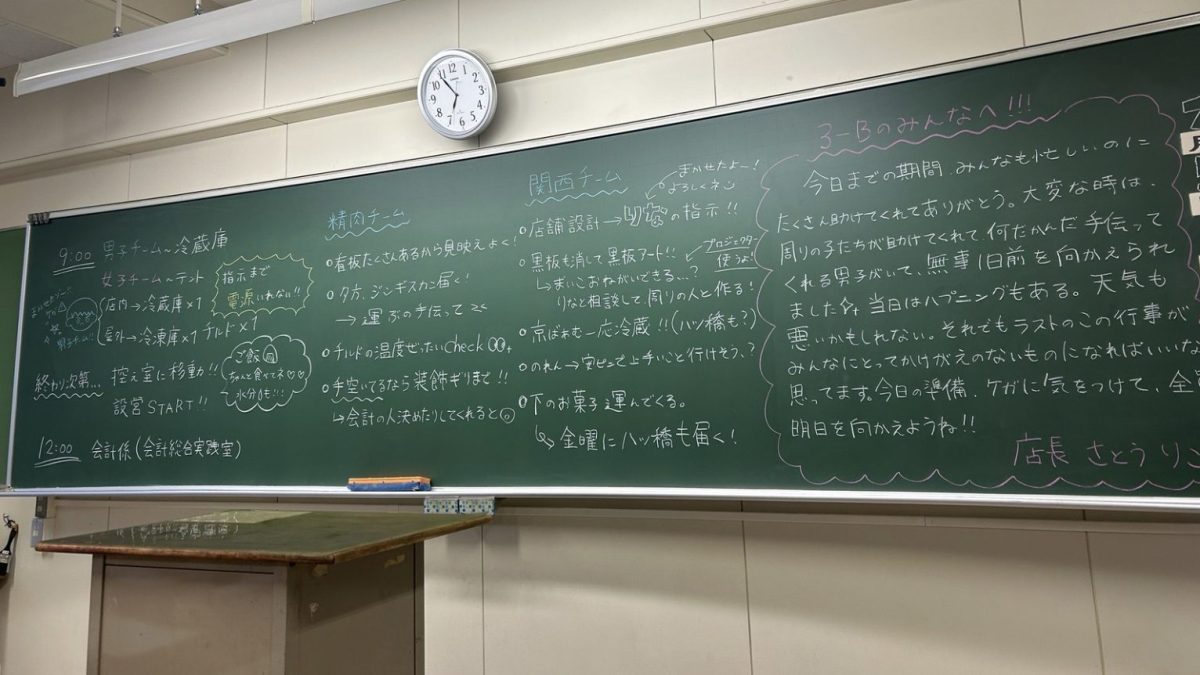 9:00 男子チーム～冷蔵庫
女子チーム～テント
店内→冷蔵庫×1
屋外→冷凍庫×1 チルド×1
指示まで
電源いれない!!
終わり次第… 控え室に移動!!
設営START!!
ご飯
ちゃんと食べてネ♡♡
水分も!!
12:00 会計係(会計総合実践室)
精肉チーム
○看板たくさんあるから見映えよく!
○夕方、ジンギスカン届く!
→運ぶの手伝って
○チルドの温度ぜったいcheck
○手空いてるなら装飾ギリまで!!
↳会計の人決めたりしてくれると◎
関西チーム
まかせたよー!
よろしくネ
○店舗設計→りなの指示!!
○黒板も消して黒板アート!!
プロジェクター
使うぶ
↳まいこおねがいできる…?
りなと相談して周りの人と作る!
○京ばあむ一応冷蔵!!(八ッ橋も?)
○のれん→安ピンで上手いこと行けそう、?
○下のお菓子運んでくる。
↳金曜に八ッ橋も届く!
3-Bのみんなへ!!!
今日までの期間 みんなも忙しいのに
たくさん助けてくれてありがとう。大変な時は、
周りの子たちが助けてくれて 何だかんだ手伝って
くれる男子がいて、無事1日前を向かえられ
ました☆ 当日はハプニングもある。天気も
悪いかもしれない。それでもラストのこの行事が
みんなにとってかけがえのないものになればいいな
思ってます。今日の準備、ケガに気をつけて、全
明日を向かえようね!!
店長 さとう りこ
12
1
2
3
4
5
6
7
8
9
10
11